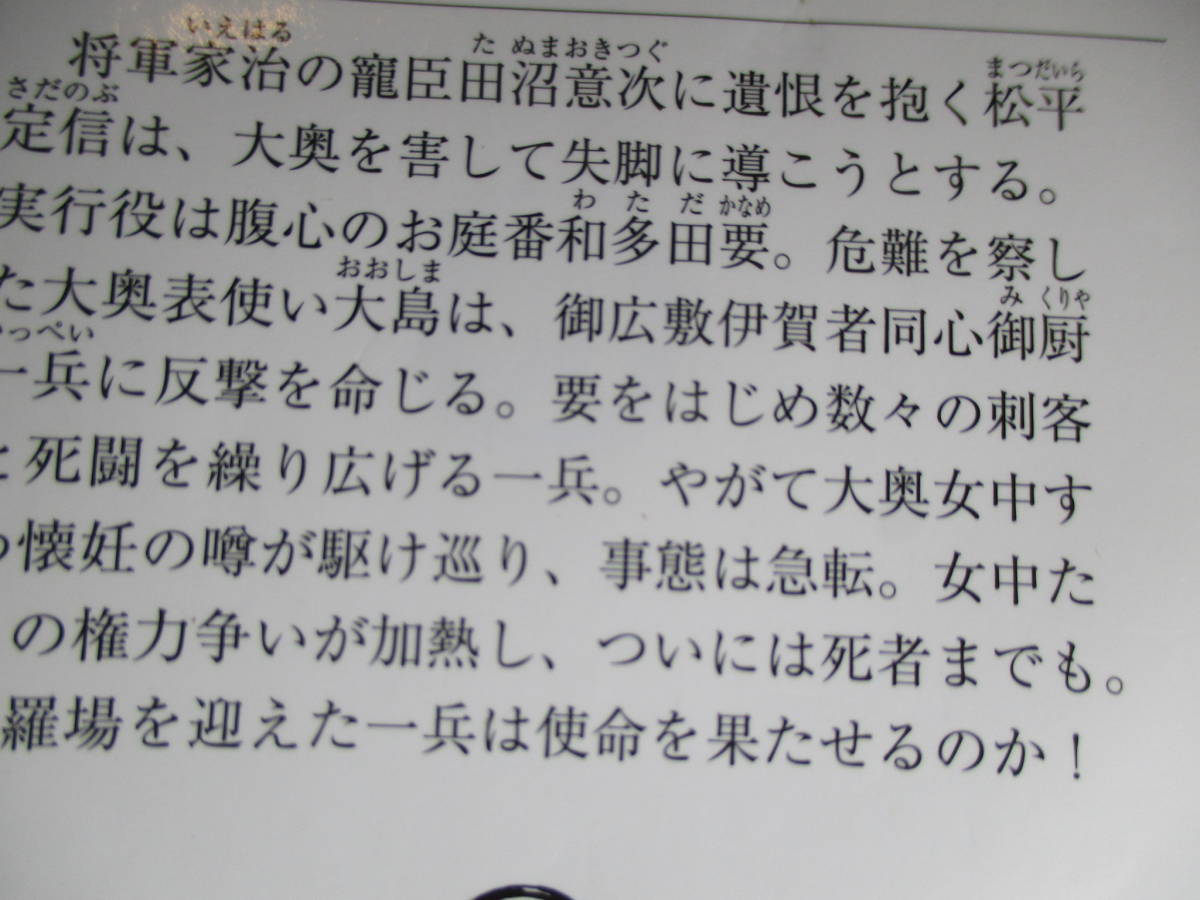 将軍家治の寵臣田沼意次に遺恨を抱く松平
定信は、大奥を害して失脚に導こうとする。
実行役は腹心のお庭番和多田要。危難を察し
た大奥表使い大島は、御広敷伊賀者同心御厨
一兵に反撃を命じる。要をはじめ数々の刺客
と死闘を繰り広げる一兵。やがて大奥女中す
の懐妊の噂が駆け巡り、事態は急転。女中た
の権力争いが加熱し、ついには死者までも。
羅場を迎えた一兵は使命を果たせるのか！